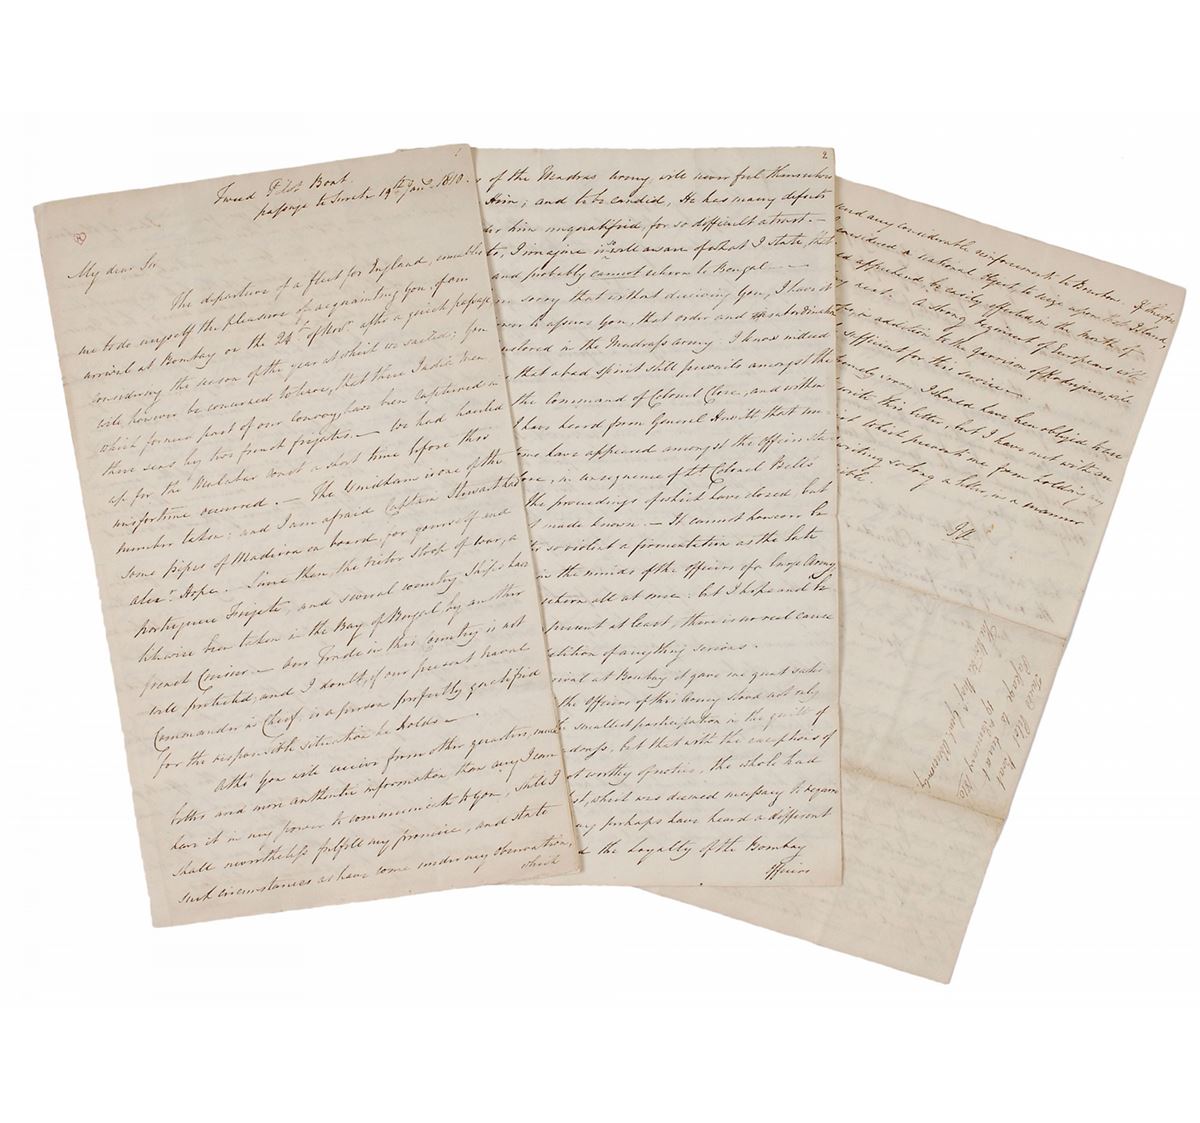 1
Tweed Pilot Boat.
passage to Surat 19th Jany 1810.
My dear Sir
The departure of a fleet for England, enables
me to do myself the pleasure of acquainting you, of our
arrival at Bombay on the 24th of Novr after a quick passage
considering the season of the year at which we sailed; you
will however be concerned to hear, that three India Men
which formed part of our convoy have been captured in
these seas by two french frigates. — We had hauled
up for the Malabar Coast a short time before this
misfortune occurred. — The Wyndham is one of the
number taken; and I am afraid Captain Stewart had
some Pipes of Madeira on board, for yourself and
Alexr Hope. Since then, the Victor Sloop of war, a
Portuguese Frigate, and several country Ships have
likewise been taken in the Bay of Bengal by another
french Cruiser — our Trade in this Country is not
well protected, and I doubt, if our present naval
Commander in Chief, is a person perfectly qualified
for the responsible situation he holds. —
Altho' you will receive from other quarters, much
better and more authentic information, than any I can
have it in my power to communicate to you, still I
shall nevertheless fulfill my promise, and state
such circumstances as have come under my observation,
which
2
of the Madras army will never feel themselves
Him; and to be candid, He has many defects
him unqualified, for so difficult a trust. —
to, I imagine is well aware of what I state, that
and probably cannot return to Bengal. —
sorry that without deceiving You, I have it
to assure You, that order and subordination
restored in the Madrass Army: I know indeed
that a bad spirit still prevails amongst the
the command of Colonel Close, and within
I have heard from General Hewitt that
have appeared amongst the officers
in consequence of Lt Colonel Bell's
the proceedings of which have closed, but
made known. — It cannot however be
so violent a fermentation as the late
in the minds of the officers of a large Army
return all at once: but I hope and
present at least, there is no real cause
of anything serious.
at Bombay it gave me great
the Officers of this Army stood not only
smallest participation in the guilt of
but that with the exceptions of
not worthy of notice, the whole had
which was deemed necessary to
may perhaps have heard a different
the Loyalty of the Bombay
officers
and any considerable reinforcements to Bombay. If
considered a national object, to seize upon that Island,
be easily effected in the month of
next. A strong regiment of Europeans with
in addition to the garrison of Roderigues, will
sufficient for this service. —
I should have been obliged to
write this letter, but I have met with an
which prevents me from holding my
writing so long a letter, in a manner
Tweed Pilot Boat
Passage to Surat
19 January 1810